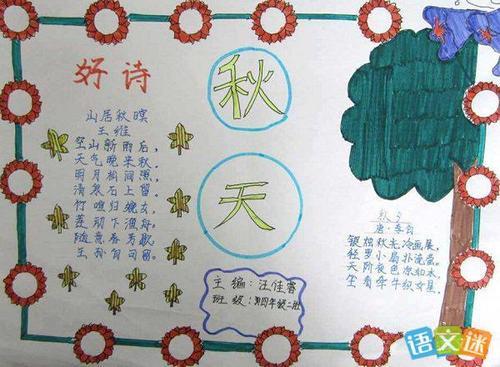 好诗
山居秋暝
王维
空山新雨后，
天气晚来秋。
明月相间照，
清泉石上留。
竹喧归浣女，
莲动下渔舟。
随意春芳歇，
王孙自可留。
秋
天
主编：汪佳睿
班级：四年级二班
秋夕
唐：
银烛秋光冷画屏，
轻罗小扇扑流萤。
天阶夜色凉如水，
坐看牵牛织女星。
语文迷